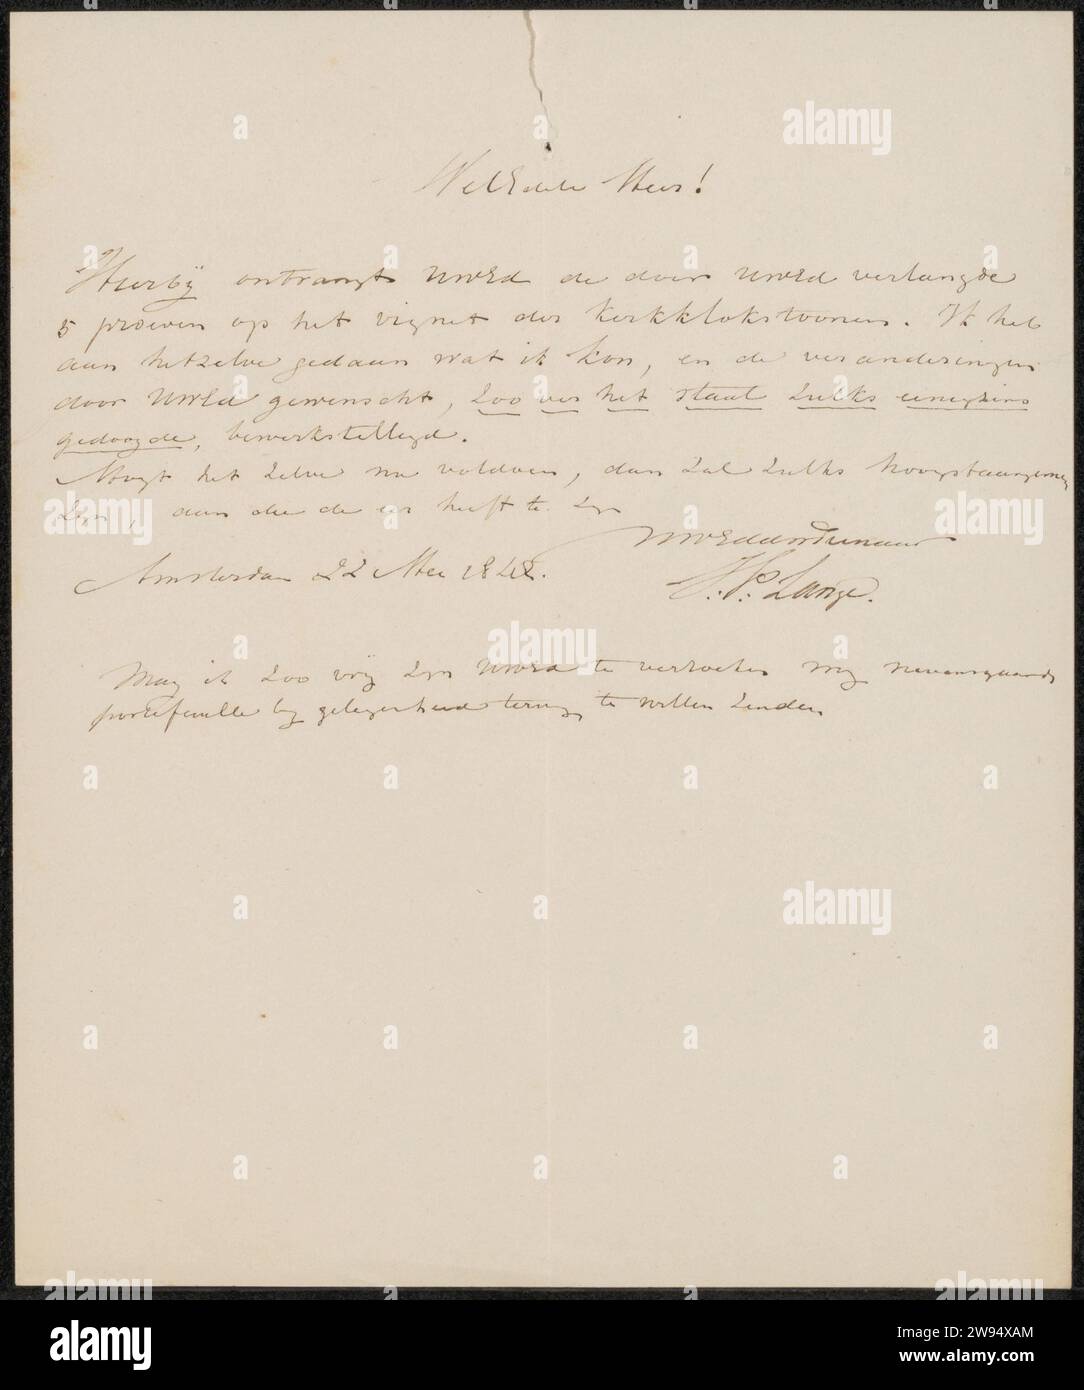 WelEdele Heer!
Hierbÿ ontvangt UWEd de door UWEd verlangde
5 proeven op het vignet der Kerkkloktoonen. Ik heb
aan hetzelve gedaan wat ik kon, en de veranderingen
door UWEd gewenscht, zoo ver het staal zulks eenigzins
gedoogde, bewerkstelligd.
Mogt het zelve nu voldoen, dan zal zulks hoogst aangenaam
zyn, aan die de eer heeft te zyn
UWEd Dienaar
Amsterdam 22 Mei 1848.
J: P: Lange.
Mag ik zoo vrÿ zyn UWEd te verzoeken my nevensgaande
portefeuille by gelegenheid terug te willen zenden
alamy
Image ID: 2W94XAM
www.alamy.com